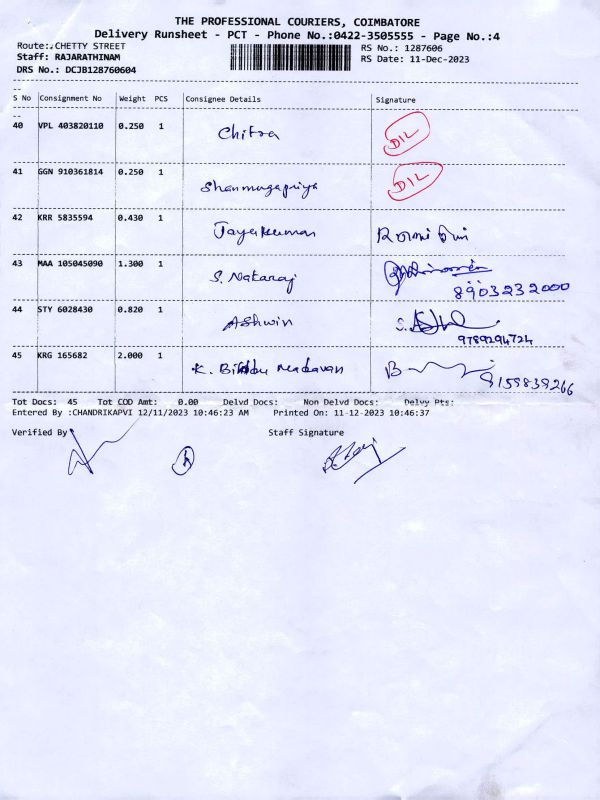 THE PROFESSIONAL COURIERS, COIMBATORE
Delivery Runsheet - PCT - Phone No.:0422-3505555 - Page No.:4
Route:.CHETTY STREET RS No.: 1287606
Staff: RAJARATHINAM RS Date: 11-Dec-2023
DRS No.: DCJB128760604
S No Consignment No Weight PCS Consignee Details Signature
40 VPL 403820110 0.250 1 Chitra DIL
41 GGN 910361814 0.250 1 Shanmugapriya DIL
42 KRR 5835594 0.430 1 Jayakumar
43 MAA 105045090 1.300 1 S. Nataraj
8903232000
44 STY 6028430 0.820 1 Ashwin
9789294724
45 KRG 165682 2.000 1 K. Madavan
9159839266
Tot Docs: 45 Tot COD Amt: 0.00 Delvd Docs: Non Delvd Docs: Delvy Pts:
Entered By :CHANDRIKAPVI 12/11/2023 10:46:23 AM Printed On: 11-12-2023 10:46:37
Verified By Staff Signature